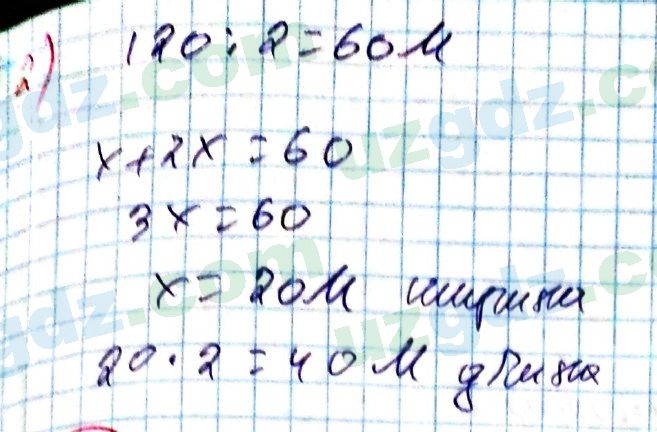 2) 120:2=60м
x+2x=60
3x=60
x=20м ширина
20·2=40м длина
uzgdz.com